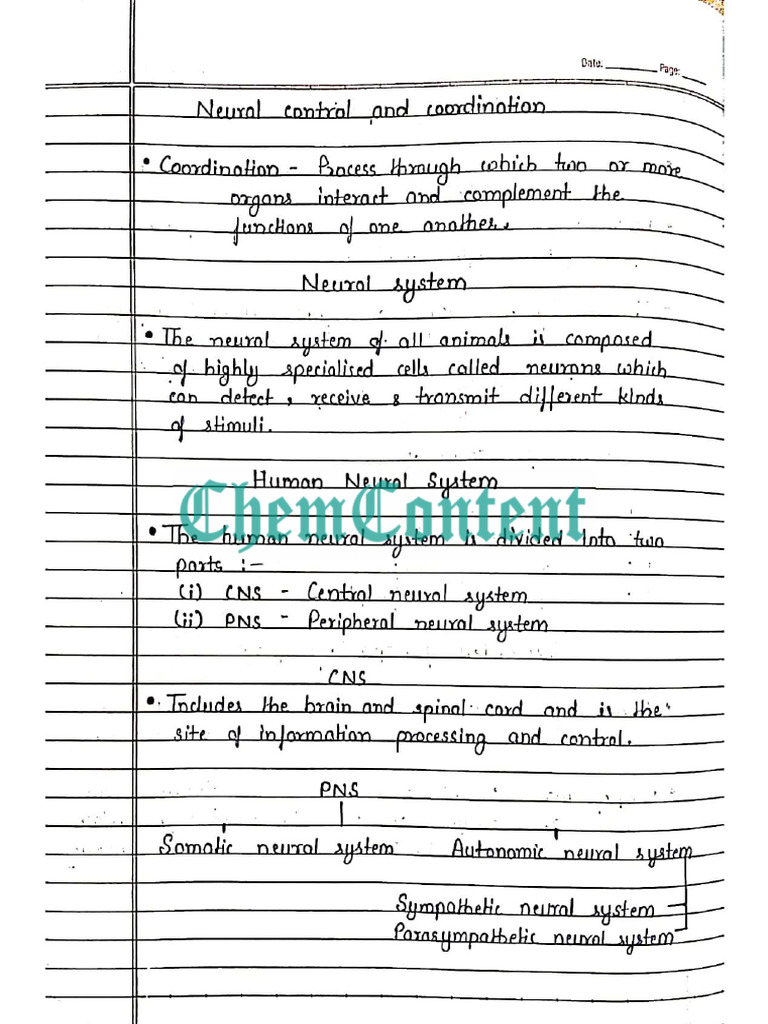 Date: Page:
Neural control and coordination
• Coordination - Process through which two or more
organs interact and complement the
functions of one another.
Neural system
• The neural system of all animals is composed
of highly specialised cells called neurons which
can detect, receive & transmit different kinds
of stimuli.
Human Neural System
ChemContent
• The human neural system is divided into two
parts :-
(i) CNS - Central neural system
(ii) PNS - Peripheral neural system
CNS
• Includes the brain and spinal cord and is the
site of information processing and control.
PNS
Somatic neural system Autonomic neural system
Sympathetic neural system
Parasympathetic neural system